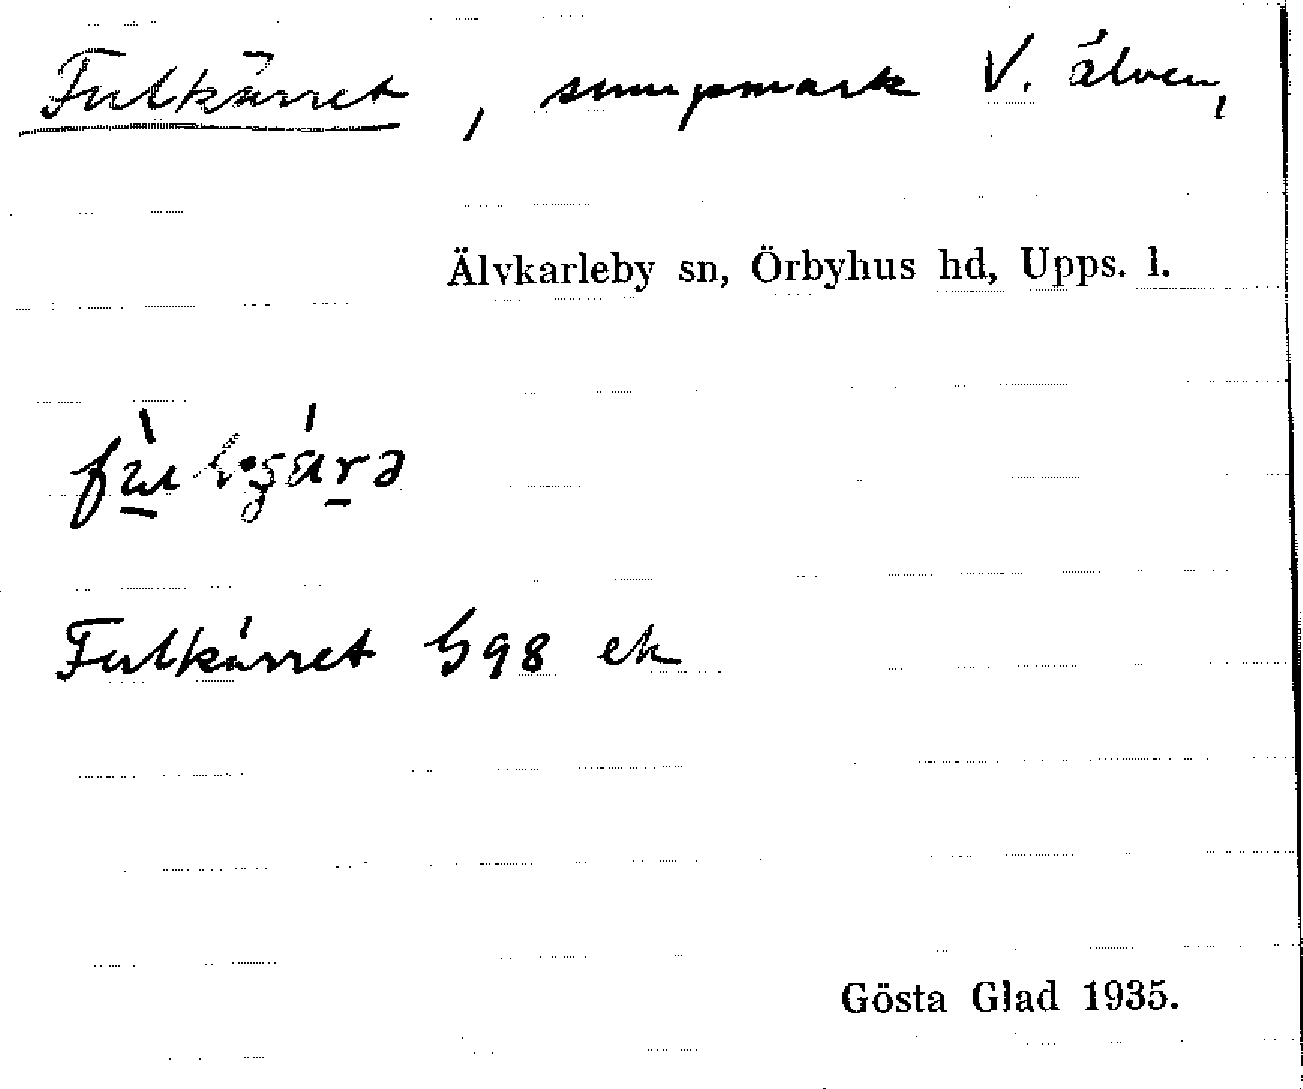 Fulkärret, sumpmark V. älven,
Älvkarleby sn, Örbyhus hd, Upps. l.
Fulkärret 598 ek
Gösta Glad 1935.